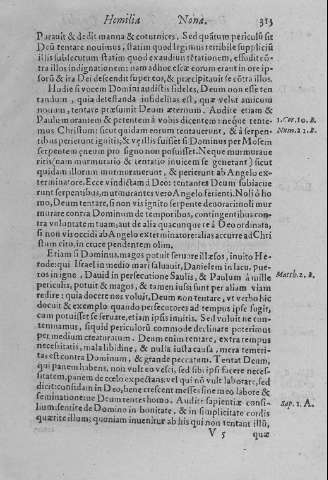 Homilia Nona. 313
Parauit & dedit manna & coturnices. Sed quâtum periculū sit
Deū tentare nouimus, statim quod legimus terribile suppliciū
illis subsecutum statim quod exaudiuit
tra illos indignationem: nam adhoc escæ eorum erant in ore ip-
sorū & ira Dei descendit super eos, & præcipitauit se cōtra illos.
Hodie si vocem Domini audistis fideles, Deum non esse ten
tandum, quia detestanda infidelitas est, quæ velut amicum
nouum, tentare præsumit Deum æternum. Audite etiam &
Paulum orantem & petentem à vobis dicentem: neque tente-
mus Christum: sicut quidam eorum tentauerunt, & à serpen-
tibus perierunt
serpentem æneum pro signo non posuisset. Neque murmurau e
ritis (nam murmuratio & tentatio inuicem se generant) sicut
quidam illorum murmurauerunt, & perierunt ab Angelo ex-
terminatore. Ecce vindictam: à Deo tentantes Deum subiacue
runt serpentibus, murmurantes vero Angelo ferienti. Noli ô ho
mo, Deum tentare, si non vis ignito serpente deuorari: noli mur
murare contra Dominum de temporibus, contingentibus con-
tra voluntatem tuam, aut de alia quacunque re à Deo ordinata,
si non vis occidi ab Angelo exterminatore: alias accurre ad Chri
stum cito, in cruce pendentem olim.
Etiam si Dominus magos potuit seruare illæsos, inuito He-
rode: qui Israel in medio mari saluauit, Danielem in lacu, pue-
ros in igne, Dauid in persecutione Saulis, & Paulum à mille
periculis, potuit & magos, & tamen iussi sunt per aliam viam
redire: quia docere nos voluit, Deum non tentare, vt verbo hic
docuit & exemplo quando persecutores ad tempus ipse fugit,
cum potuisset se seruare, etiam ipsis inuitis. Sed voluit ne con-
temnamus, si quid periculorū commode declinare poterimus
per medium creaturatum. Deum enim tentare, extra tempus
necessitatis, mala libidine, & nulla iusta causa, mera temeri-
tas est contra Dominum, & grande peccatum. Tentat Deum,
qui panem habens, non vult eo vesci, sed sibi ipsi facere neces-
sitatem, panem de cœlo expectans: vel qui nō vult laborare, sed
dicit: confidam in Deo, bene crescent messes sine meo labore &
seminatione: me Deum tentes homo. Audite sapientiæ consi-
lium: sentite de Domino in bonitate, & in simplicitate cordis
quærite illum: quoniam inuenitur ab his qui non tentant illū,
V 5 quæ
1. Cor. 10. B.
Num. 21. B.
Matth. 2. B.
Sap. 1. A.